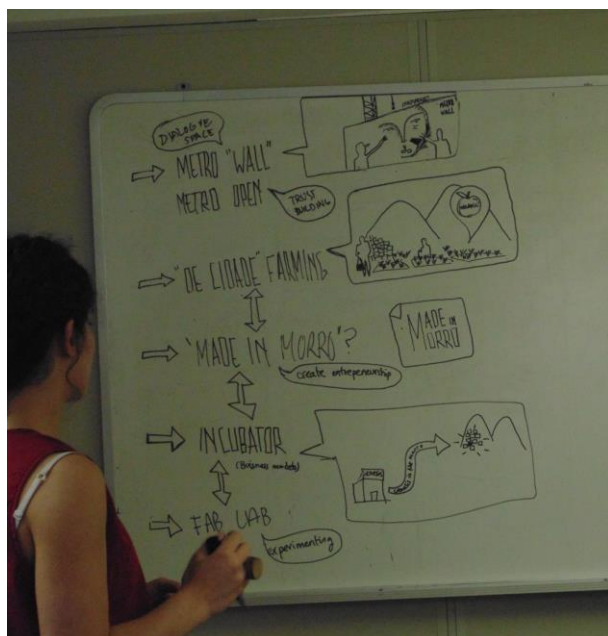 DIALOGUE
SPACE
METRO "WALL"
METRO OPEN
TRUST
BUILDING
METRO
WALL
"DE CIDADE" FARMING
'MADE IN MORRO'?
create entrepeneurship
MADE IN
MORRO
INCUBATOR
(Business mandate)
FAB LAB
experimenting